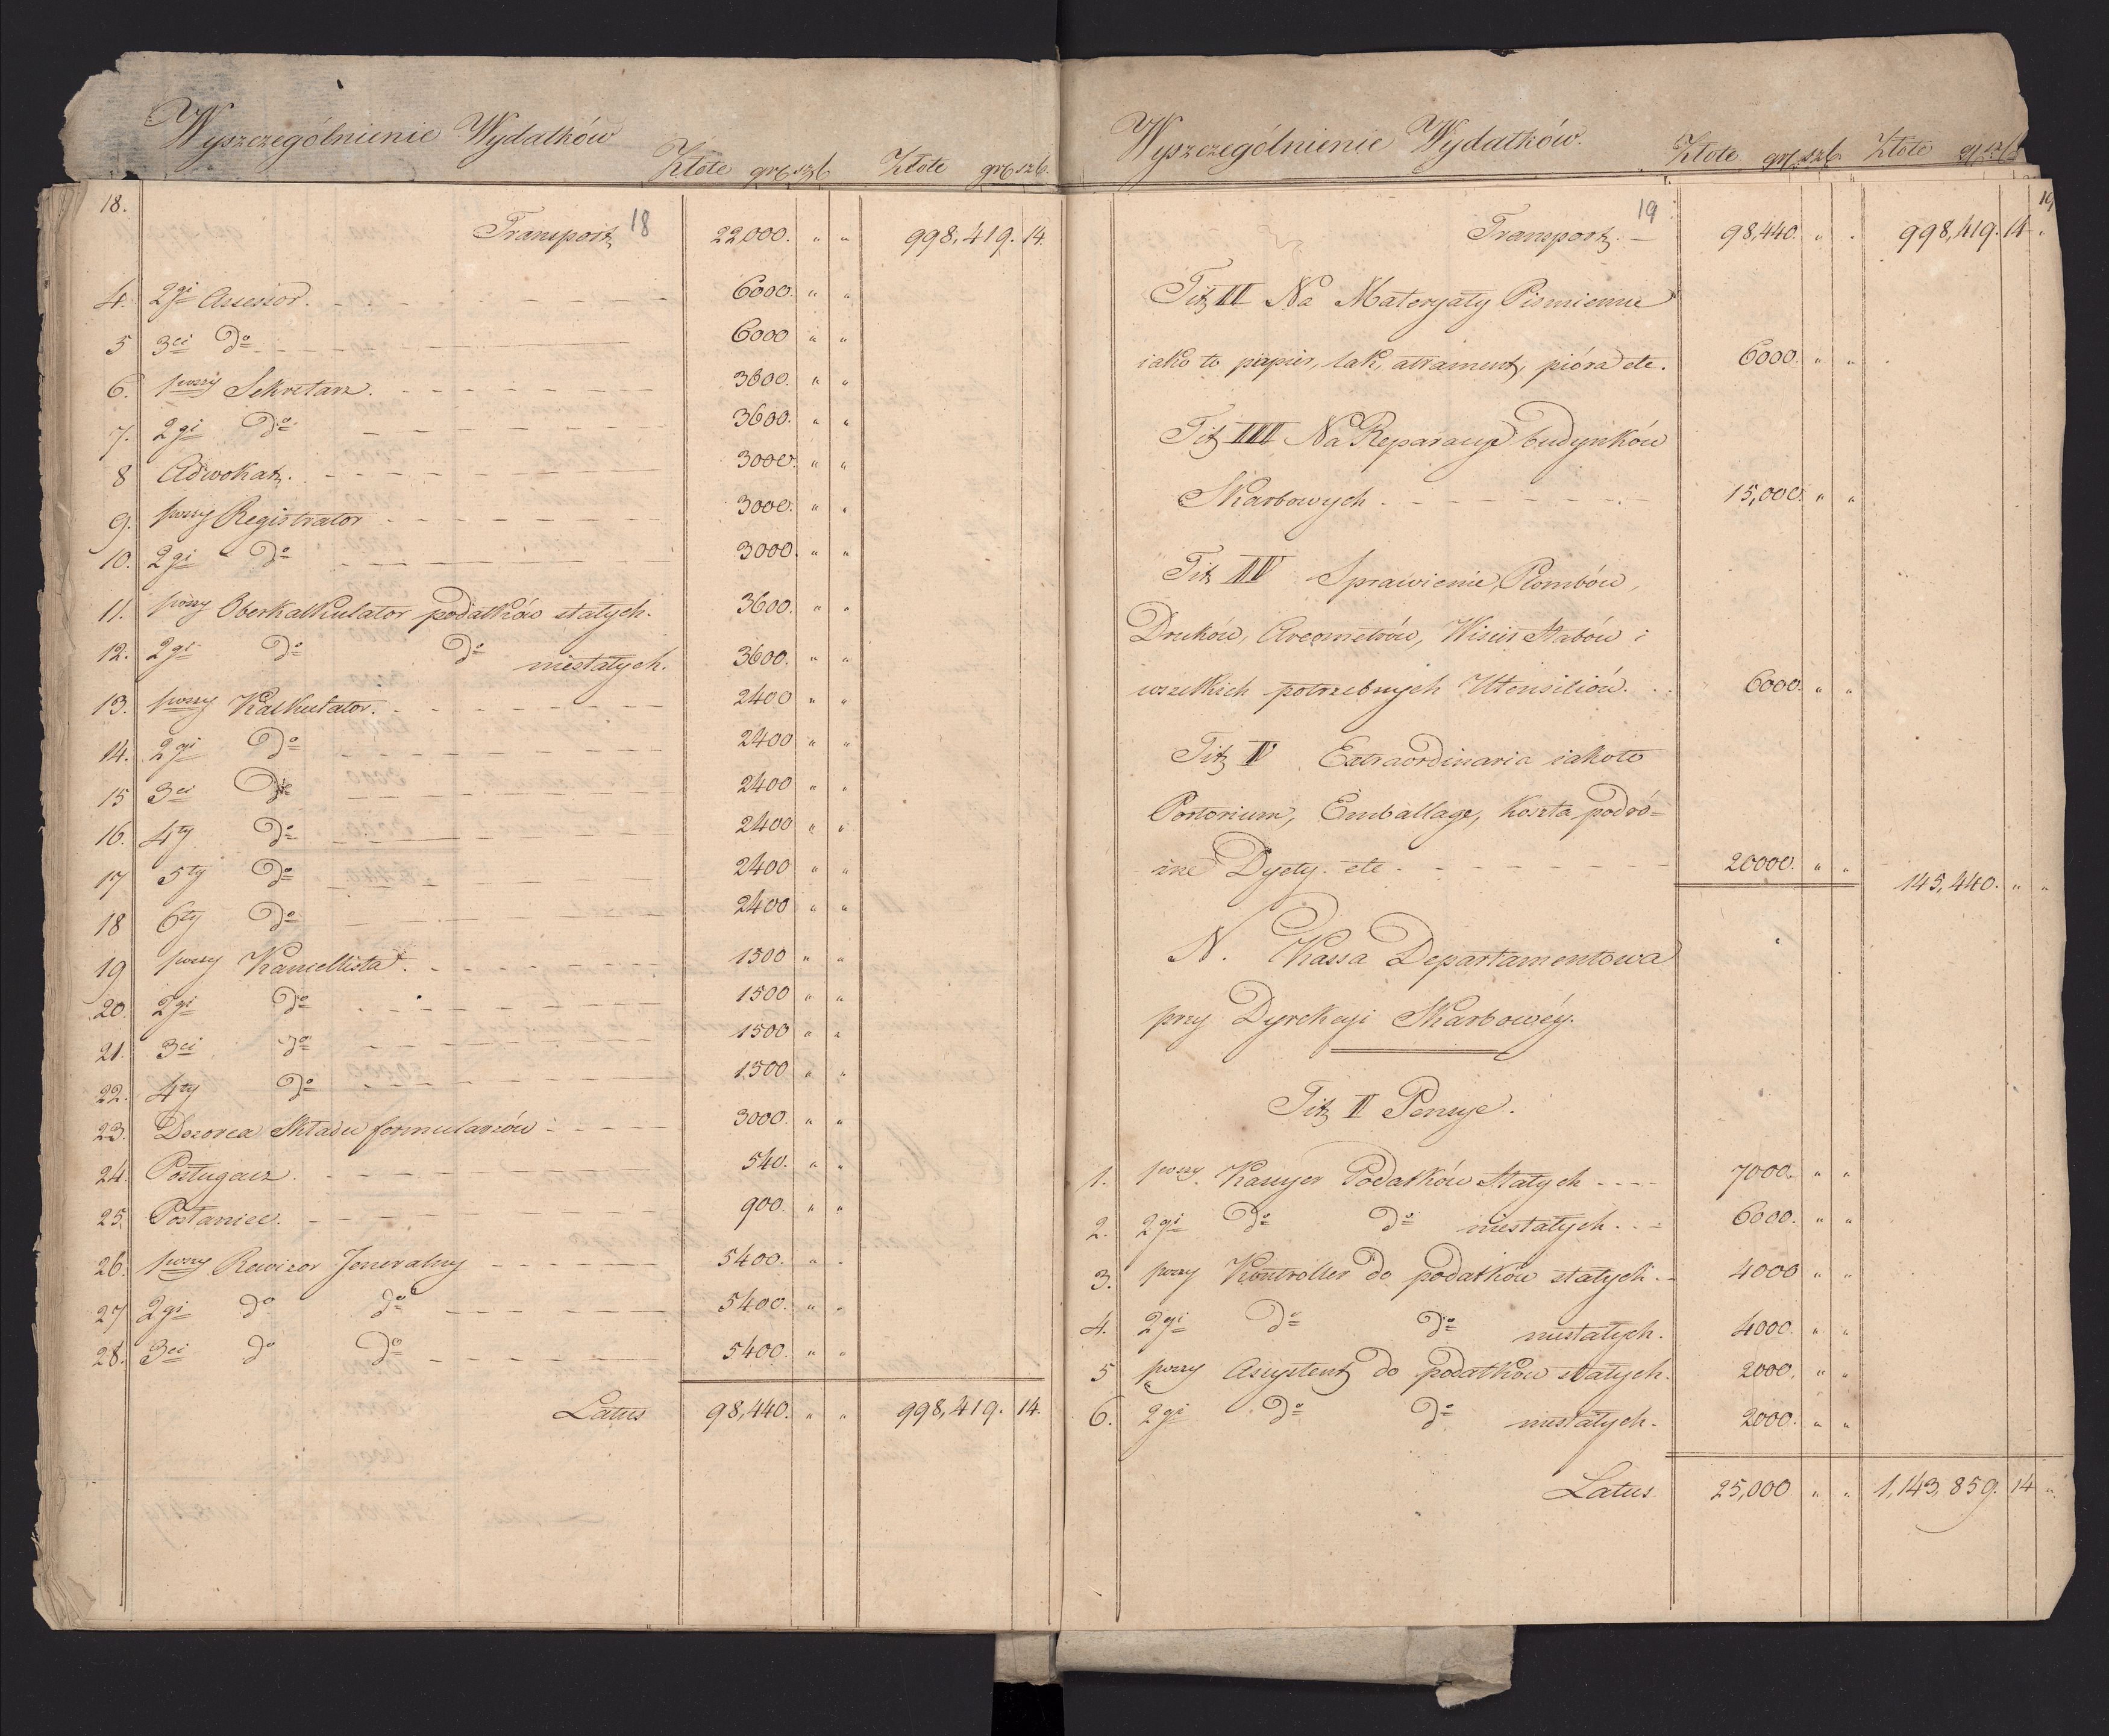 Wyszczególnienie Wydatków
Złote gr szl Złote gr szl.
18.
Transport 18 22,000. " " 998,419. 14.
4. 2gi Assessor. 6000. " "
5 3ci Do 6000 " "
6. pwszy Sekretarz. 3600. " "
7. 2gi Do 3600. " "
8 Adwokat. 3000. " "
9. pwszy Registrator 3000. " "
10. 2gi Do 3000. " "
11. pwszy Oberkalkulator podatków stałych. 3600. " "
12. 2gi Do Do niestałych. 3600. " "
13. pwszy Kalkulator. 2400 " "
14. 2gi Do 2400 " "
15 3ci Do 2400 " "
16. 4ty Do 2400 " "
17 5ty Do 2400 " "
18 6ty Do 2400 " "
19 pwszy Kancellista. 1500 " "
20. 2gi Do 1500 " "
21. 3ci do 1500 " "
22. 4ty Do 1500 " "
23. Dozorca Składu formularzów 3000. " "
24. Posługacz. 540. " "
25. Posłaniec. 900. " "
26. pwszy Rewizor Jeneralny 5400. " "
27 2gi do do 5400. " "
28. 3ci do Do 5400. " "
Latus 98,440. " " 998,419. 14.
Wyszczególnienie Wydatków.
Złote gr. szl. Złote gr szl
19
19
Transport. 98,440. " " 998,419. 14 "
Tit II Na Materyały Pismienne
iako to papier, lak, atrament, pióra etc. 6000. " "
Tit III Na Reparacye budynków
Skarbowych. 15,000. " "
Tit IV Sprawienie, Plombów,
Druków, Areometrów, Wisir Stabów i
wszelkich potrzebnych Utensiliów. 6000. " "
Tit V Extraordinaria iakoto
Portorium, Emballage, Koszta podró-
żne Dyety. etc. 20000. " " 145,440. " "
N. Kassa Departamentowa
przy Dyrekcyi Skarbowéy.
Tit I Pensye.
1. pwszy. Kassyer Podatków Stałych 7000. " "
2. 2gi Do Do niestałych. 6000. " "
3. pwszy Kontroller do podatków stałych. 4000 " "
4. 2gi Do Do niestałych. 4000. " "
5 pwszy Assystent do podatków stałych. 2000. " "
6. 2gi Do Do niestałych. 2000. " "
Latus 25,000 " " 1,143,859. 14 "